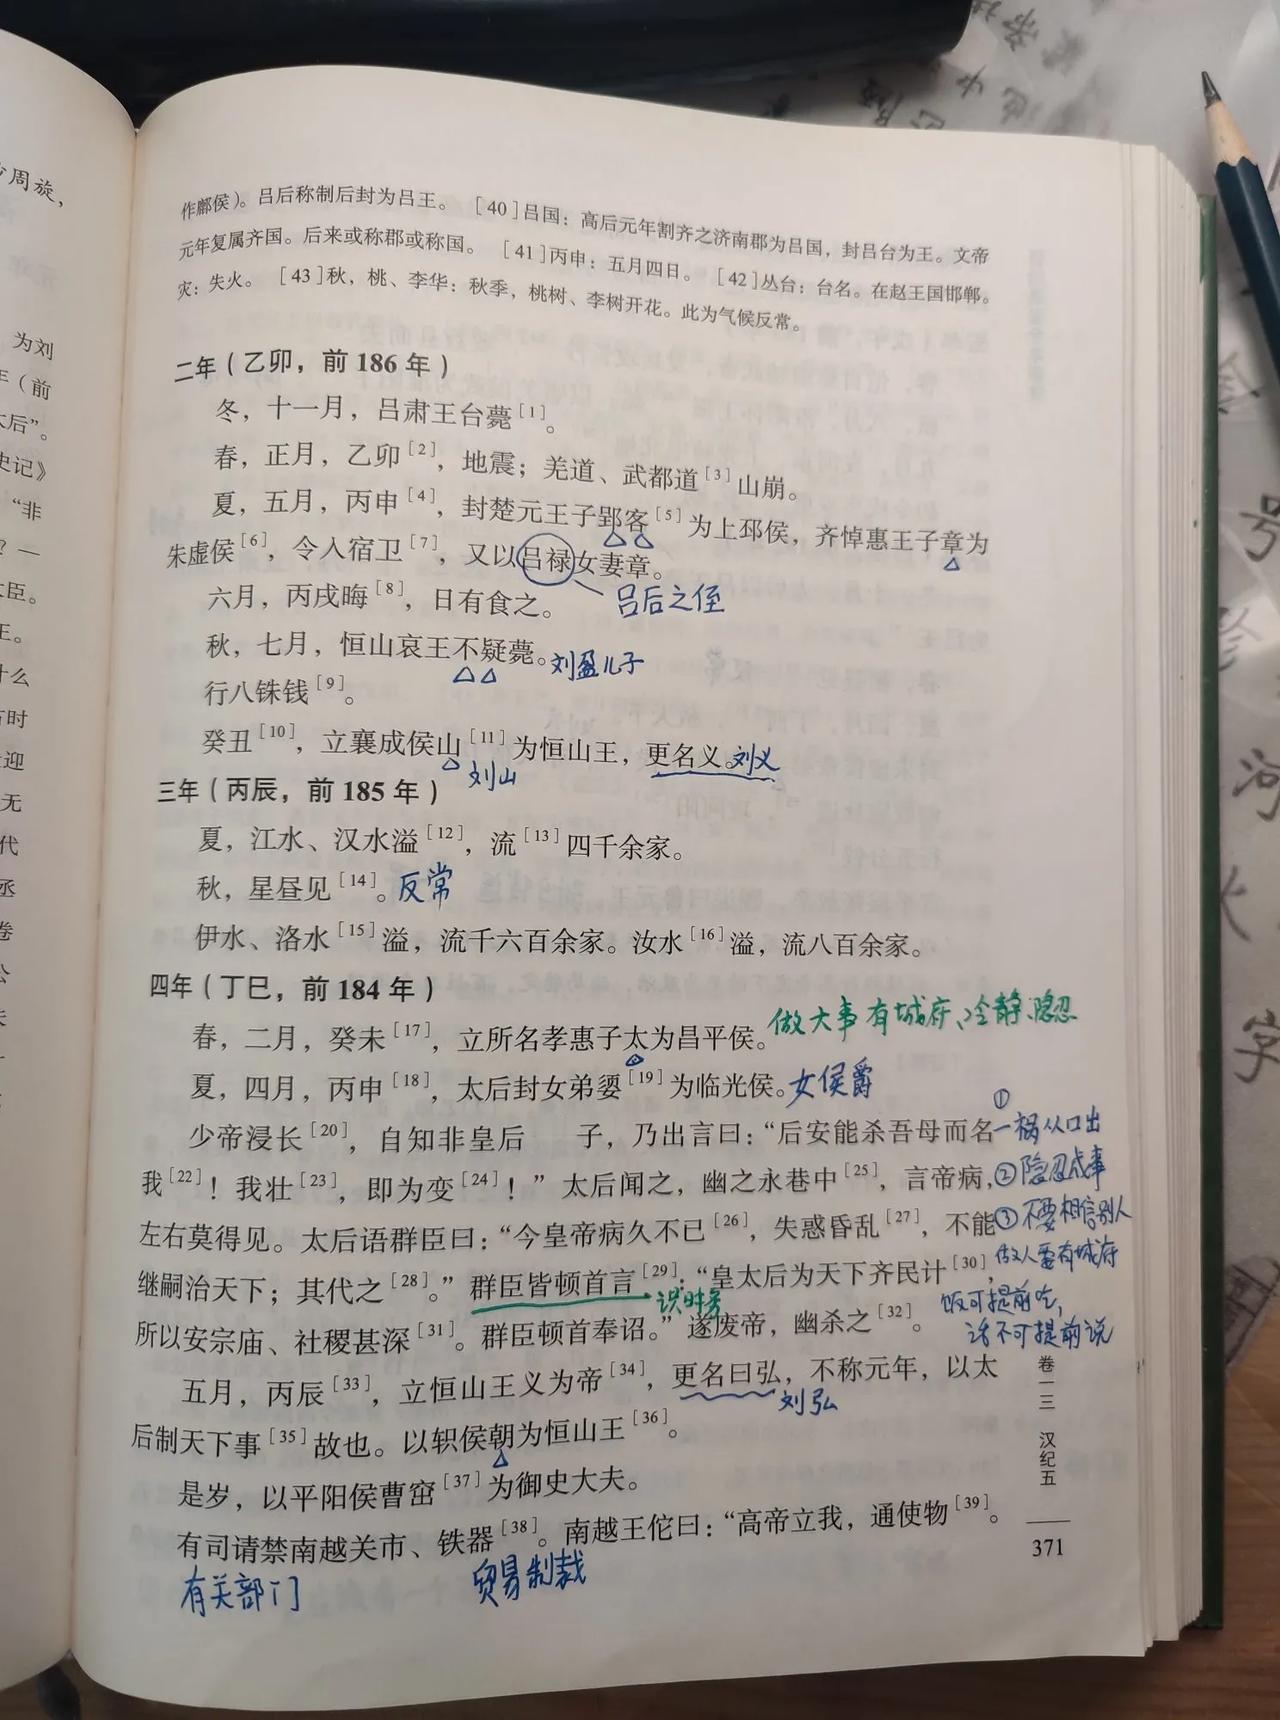 作鄜侯）。吕后称制后封为吕王。 [40]吕国：高后元年割齐之济南郡为吕国，封吕台为王。文帝
元年复属齐国。后来或称郡或称国。 [41]丙申：五月四日。 [42]丛台：台名。在赵王国邯郸。
灾：失火。 [43]秋，桃、李华：秋季，桃树、李树开花。此为气候反常。
二年（乙卯，前186年）
冬，十一月，吕肃王台薨[1]。
春，正月，乙卯[2]，地震；羌道、武都道[3]山崩。
夏，五月，丙申[4]，封楚元王子郢客[5]为上邳侯，齐悼惠王子章为
朱虚侯[6]，令入宿卫[7]，又以吕禄女妻章。
吕后之侄
六月，丙戌晦[8]，日有食之。
秋，七月，恒山哀王不疑薨。刘盈儿子
行八铢钱[9]。
癸丑[10]，立襄成侯山[11]为恒山王，更名义。刘义
刘山
三年（丙辰，前185年）
夏，江水、汉水溢[12]，流[13]四千余家。
秋，星昼见[14]。反常
伊水、洛水[15]溢，流千六百余家。汝水[16]溢，流八百余家。
四年（丁巳，前184年）
做大事有城府、冷静、隐忍
春，二月，癸未[17]，立所名孝惠子太为昌平侯。
夏，四月，丙申[18]，太后封女弟嬃[19]为临光侯。女侯爵
少帝浸长[20]，自知非皇后 子，乃出言曰：“后安能杀吾母而名
①祸从口出
我[22]！我壮[23]，即为变[24]！”太后闻之，幽之永巷中[25]，言帝病，
②隐忍成事
左右莫得见。太后语群臣曰：“今皇帝病久不已[26]，失惑昏乱[27]，不能
③不要相信别人
继嗣治天下；其代之[28]。”群臣皆顿首言[29]：“皇太后为天下齐民计[30]，
做人要有城府
识时务
所以安宗庙、社稷甚深[31]。群臣顿首奉诏。”遂废帝，幽杀之[32]。
饭可提前吃，
话不可提前说
五月，丙辰[33]，立恒山王义为帝[34]，更名曰弘，不称元年，以太
刘弘
后制天下事[35]故也。以轵侯朝为恒山王[36]。
是岁，以平阳侯曹窋[37]为御史大夫。
有司请禁南越关市、铁器[38]。南越王佗曰：“高帝立我，通使物[39]。
有关部门
贸易制裁
卷一三 汉纪五
371
周旋，
为刘
（前
后”。
史记》
“非
？一
臣。
王。
什么
时
迎
无
代
丞
卷
公